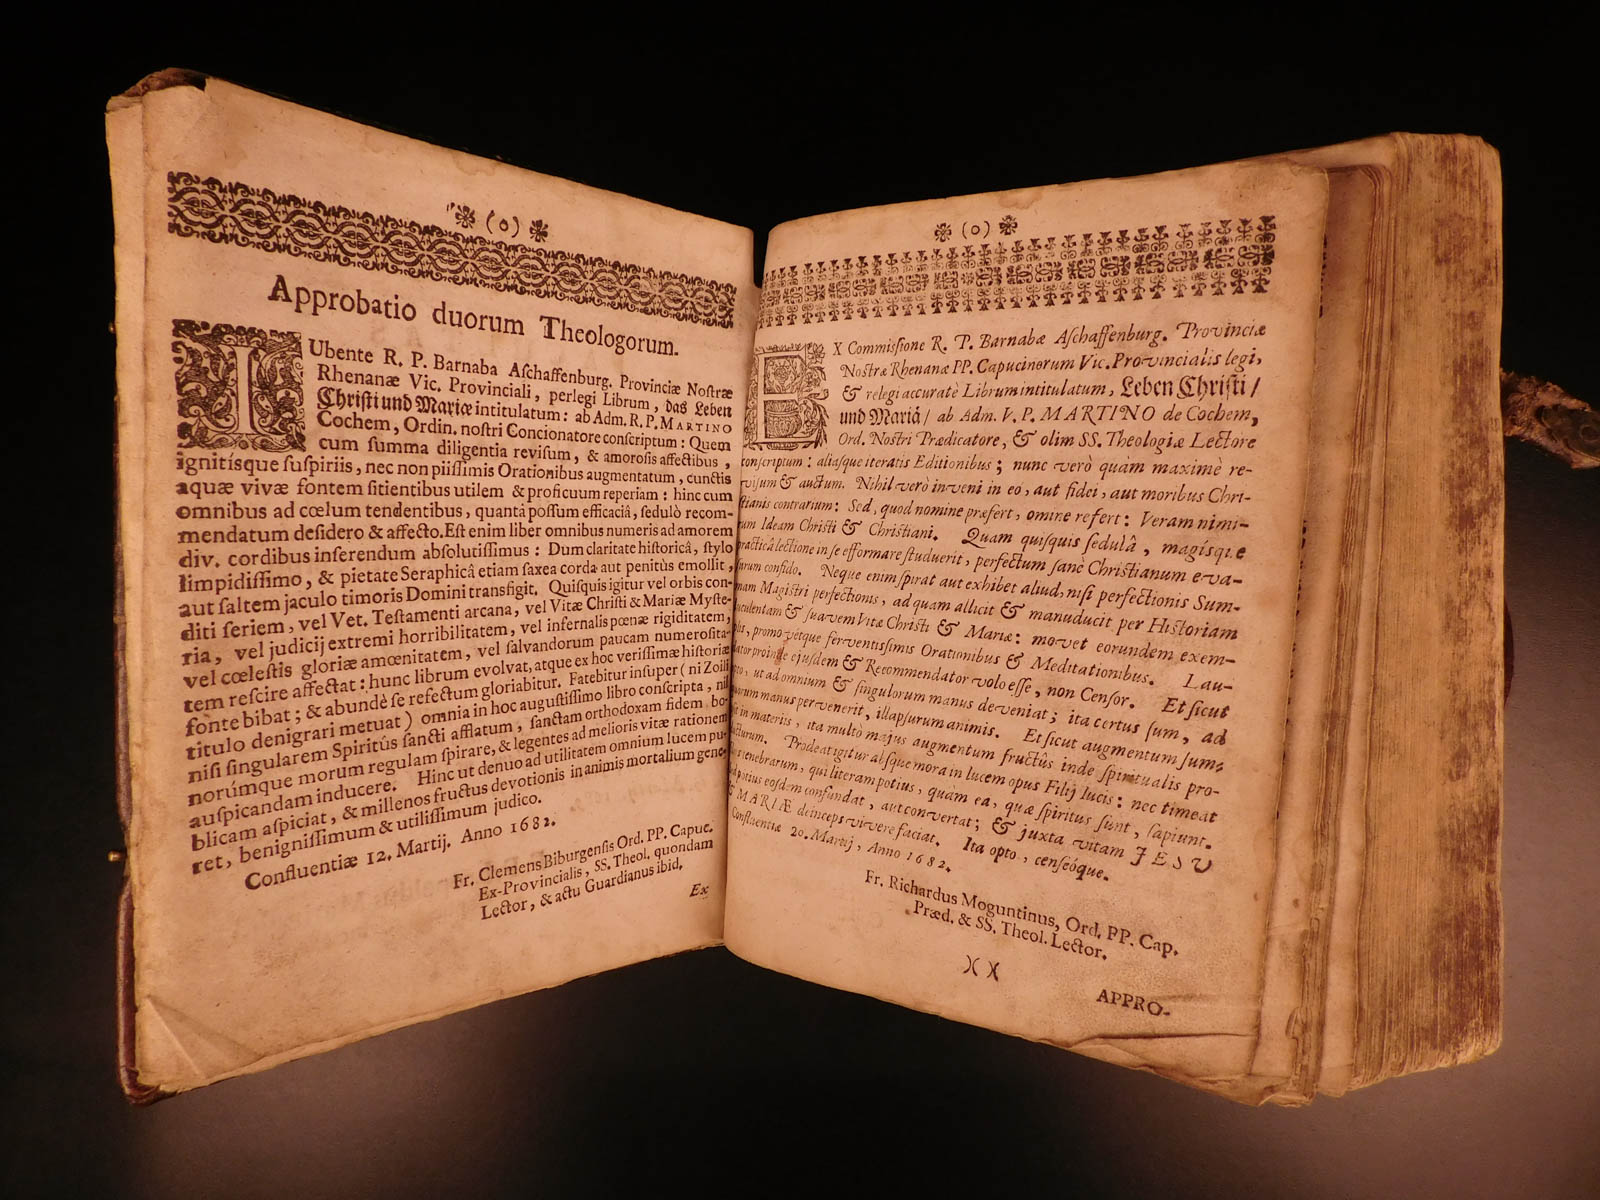 (o)
Approbatio duorum Theologorum.
IUbente R. P. Barnaba Aſchaffenburg. Provinciæ Noſtræ
Rhenanæ Vic. Provinciali, perlegi Librum, das Leben
Chriſti und Mariæ intitulatum: ab Adm. R. P. MARTINO
Cochem, Ordin. noſtri Concionatore conſcriptum: Quem
cum ſumma diligentia reviſum, & amoroſis affectibus,
ignitíſque ſuſpiriis, nec non piiſſimis Orationibus augmentatum, cunctis
aquæ vivæ fontem ſitientibus utilem & proficuum reperiam: hinc cum
omnibus ad cœlum tendentibus, quantâ poſſum efficaciâ, ſedulò recom-
mendatum deſidero & affecto. Eſt enim liber omnibus numeris ad amorem
div. cordibus inferendum abſolutiſſimus: Dum claritate hiſtoricâ, ſtylo
limpidiſſimo, & pietate Seraphicâ etiam ſaxea corda aut penitùs emollit,
aut ſaltem jaculo timoris Domini transfigit. Quiſquis igitur vel orbis con-
diti ſeriem, vel Vet. Teſtamenti arcana, vel Vitæ Chriſti & Mariæ Myſte-
ria, vel judicij extremi horribilitatem, vel infernalis pœnæ rigiditatem,
vel cœleſtis gloriæ amœnitatem, vel ſalvandorum paucam numeroſita-
tem reſcire affectat: hunc librum evolvat, atque ex hoc veriſſimæ hiſtoriæ
fonte bibat; & abundè ſe refectum gloriabitur. Fatebitur inſuper (ni Zoili
titulo denigrari metuat) omnia in hoc auguſtiſſimo libro conſcripta, nil
niſi ſingularem Spiritûs ſancti afflatum, ſanctam orthodoxam fidem bo-
norúmque morum regulam ſpirare, & legentes ad melioris vitæ rationem
auſpicandam inducere. Hinc ut denuo ad utilitatem omnium lucem pu-
blicam aſpiciat, & millenos fructus devotionis in animis mortalium gene-
ret, benigniſſimum & utiliſſimum judico.
Confluentiæ 12. Martij. Anno 1682.
Fr. Clemens Biburgenſis Ord. PP. Capuc.
Ex-Provincialis, SS. Theol. quondam
Lector, & actu Guardianus ibid.
Ex
(o)
EX Commiſſione R. P. Barnabæ Aſchaffenburg. Provinciæ
Noſtræ Rhenanæ PP. Capucinorum Vic. Provincialis legi,
& relegi accuratè Librum intitulatum, Leben Chriſti/
und Mariä/ ab Adm. V. P. MARTINO de Cochem,
Ord. Noſtri Prædicatore, & olim SS. Theologiæ Lectore
conſcriptum: aliaſque iteratis Editionibus; nunc verò quàm maximè re-
viſum & auctum. Nihil verò inveni in eo, aut fidei, aut moribus Chri-
ſtianis contrarium: Sed, quod nomine præfert, omine refert: Veram nimi-
rum Ideam Chriſti & Chriſtiani. Quam quiſquis ſedulâ, magíſque
practicâ lectione in ſe efformare ſtuduerit, perfectum ſanè Chriſtianum eva-
ſurum confido. Neque enim ſpirat aut exhibet aliud, niſi perfectionis Sum-
mam Magiſtri perfectionis, ad quam allicit & manuducit per Hiſtoriam
luculentam & ſuavem Vitæ Chriſti & Mariæ: movet eorundem exem-
plis, promovétque ferventiſſimis Orationibus & Meditationibus. Lau-
dator proinde ejuſdem & Recommendator volo eſſe, non Cenſor. Et ſicut
opto, ut ad omnium & ſingulorum manus deveniat; ita certus ſum, ad
quorum manus pervenerit, illapſurum animis. Et ſicut augmentum ſum-
ſit in materiis, ita multò majus augmentum fructûs inde ſpiritualis pro-
ducturum. Prodeat igitur abſque mora in lucem opus Filij lucis: nec timeat
tenebrarum, qui literam potius, quàm ea, quæ ſpiritus ſunt, ſapiunt.
potius eoſdem confundat, aut convertat; & juxta vitam JESU
& MARIÆ deinceps vivere faciat. Ita opto, cenſeóque.
Confluentiæ 20. Martij, Anno 1682.
Fr. Richardus Moguntinus, Ord. PP. Cap.
Præd. & SS. Theol. Lector.
)( )(
APPRO-